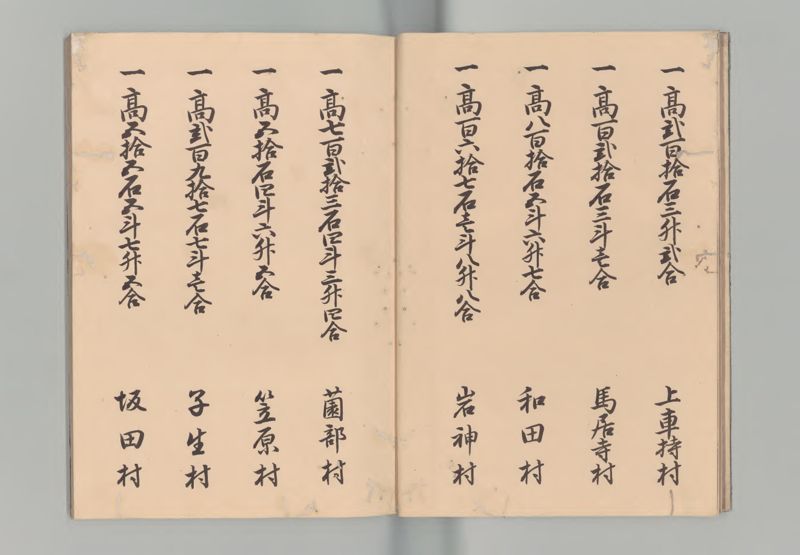 一高弐百拾石三升弐合　上車持村
一高百弐拾石三斗壱合　馬居寺村
一高八百拾石五斗六升七合　和田村
一高百六拾七石壱斗八升八合　岩神村
一高七百弐拾三石四斗三升四合　薗部村
一高五拾石四斗六升五合　笠原村
一高弐百九拾七石七斗壱合　子生村
一高五拾五石五斗七升五合　坂田村